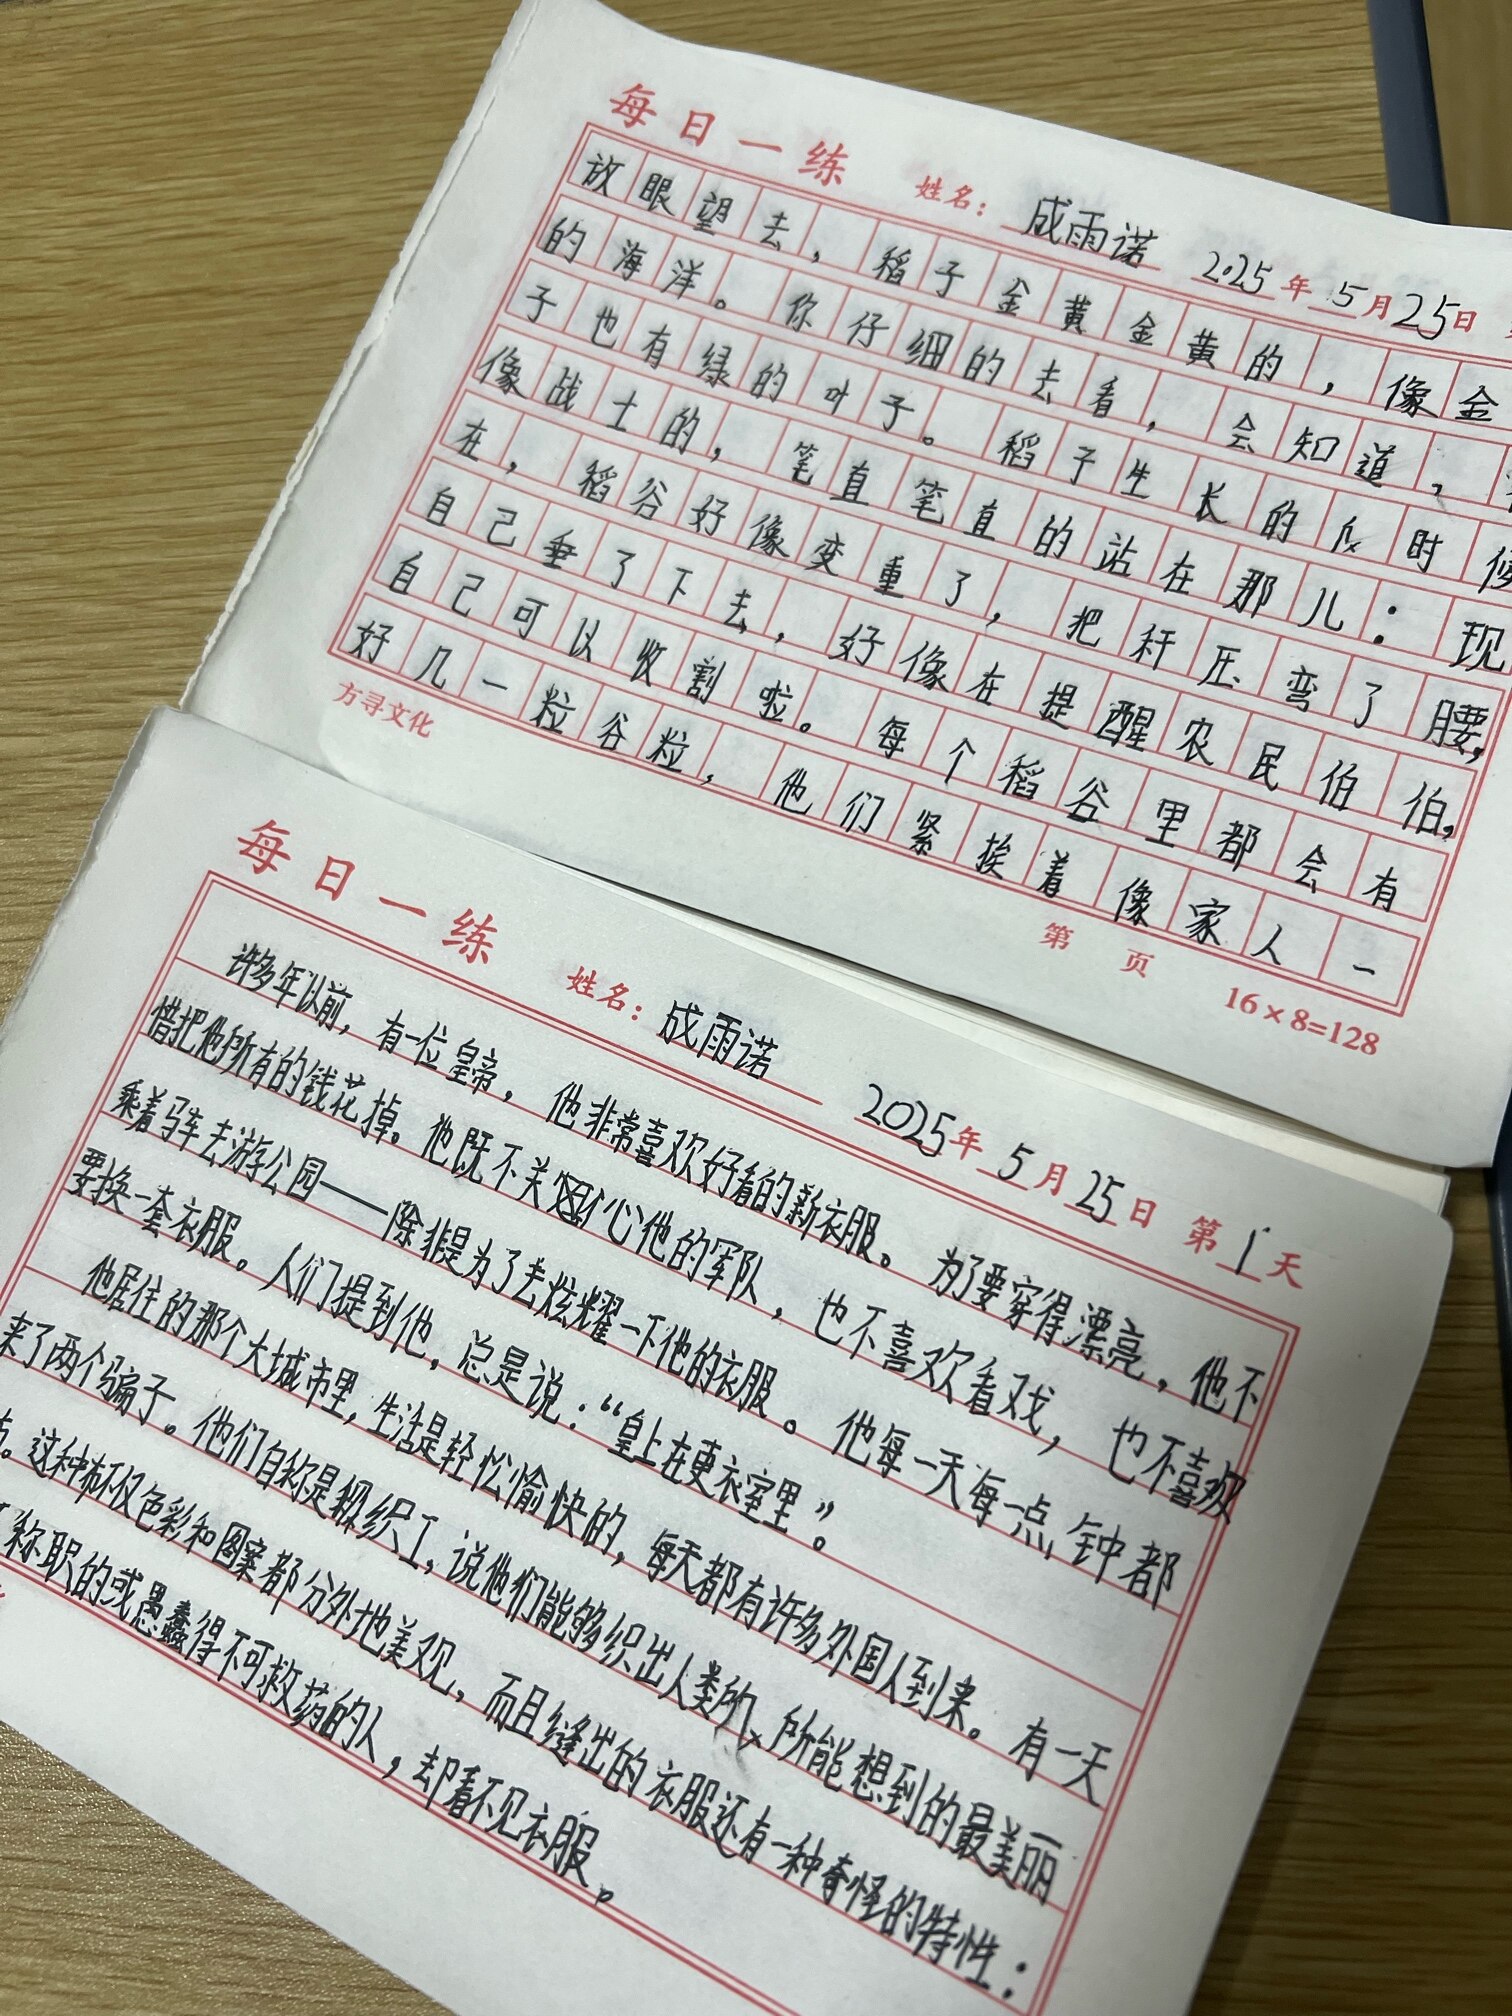 每日一练 姓名: 成雨诺 2025年5月25日
放眼望去，稻子金黄金黄的，像金
的海洋。你仔细的去看，会知道，
子也有绿的叶子。稻子生长的时候
像战士的，笔直笔直的站在那儿：现
在，稻谷好像变重了，把秆压弯了腰，
自己垂了下去，好像在提醒农民伯伯，
自己可以收割啦。每个稻谷里都会有
好几一粒谷粒，他们紧挨着像家人一
方寻文化 第 页 16×8=128
每日一练 姓名: 成雨诺 2025年5月25日 第1天
许多年以前，有一位皇帝，他非常喜欢好看的新衣服。为了要穿得漂亮，他不
惜把他所有的钱花掉。他既不关心他的军队，也不喜欢看戏，也不喜欢
乘着马车去游公园——除非是为了去炫耀一下他的衣服。他每一天每一点钟都
要换一套衣服。人们提到他，总是说：“皇上在更衣室里”。
他居住的那个大城市里，生活是轻松愉快的，每天都有许多外国人到来。有一天
来了两个骗子。他们自称是织工，说他们能够织出人类所能想到的最美丽
。这种布不仅色彩和图案都分外地美观，而且缝出的衣服还有一种奇怪的特性：
称职的或愚蠢得不可救药的人，却看不见衣服。